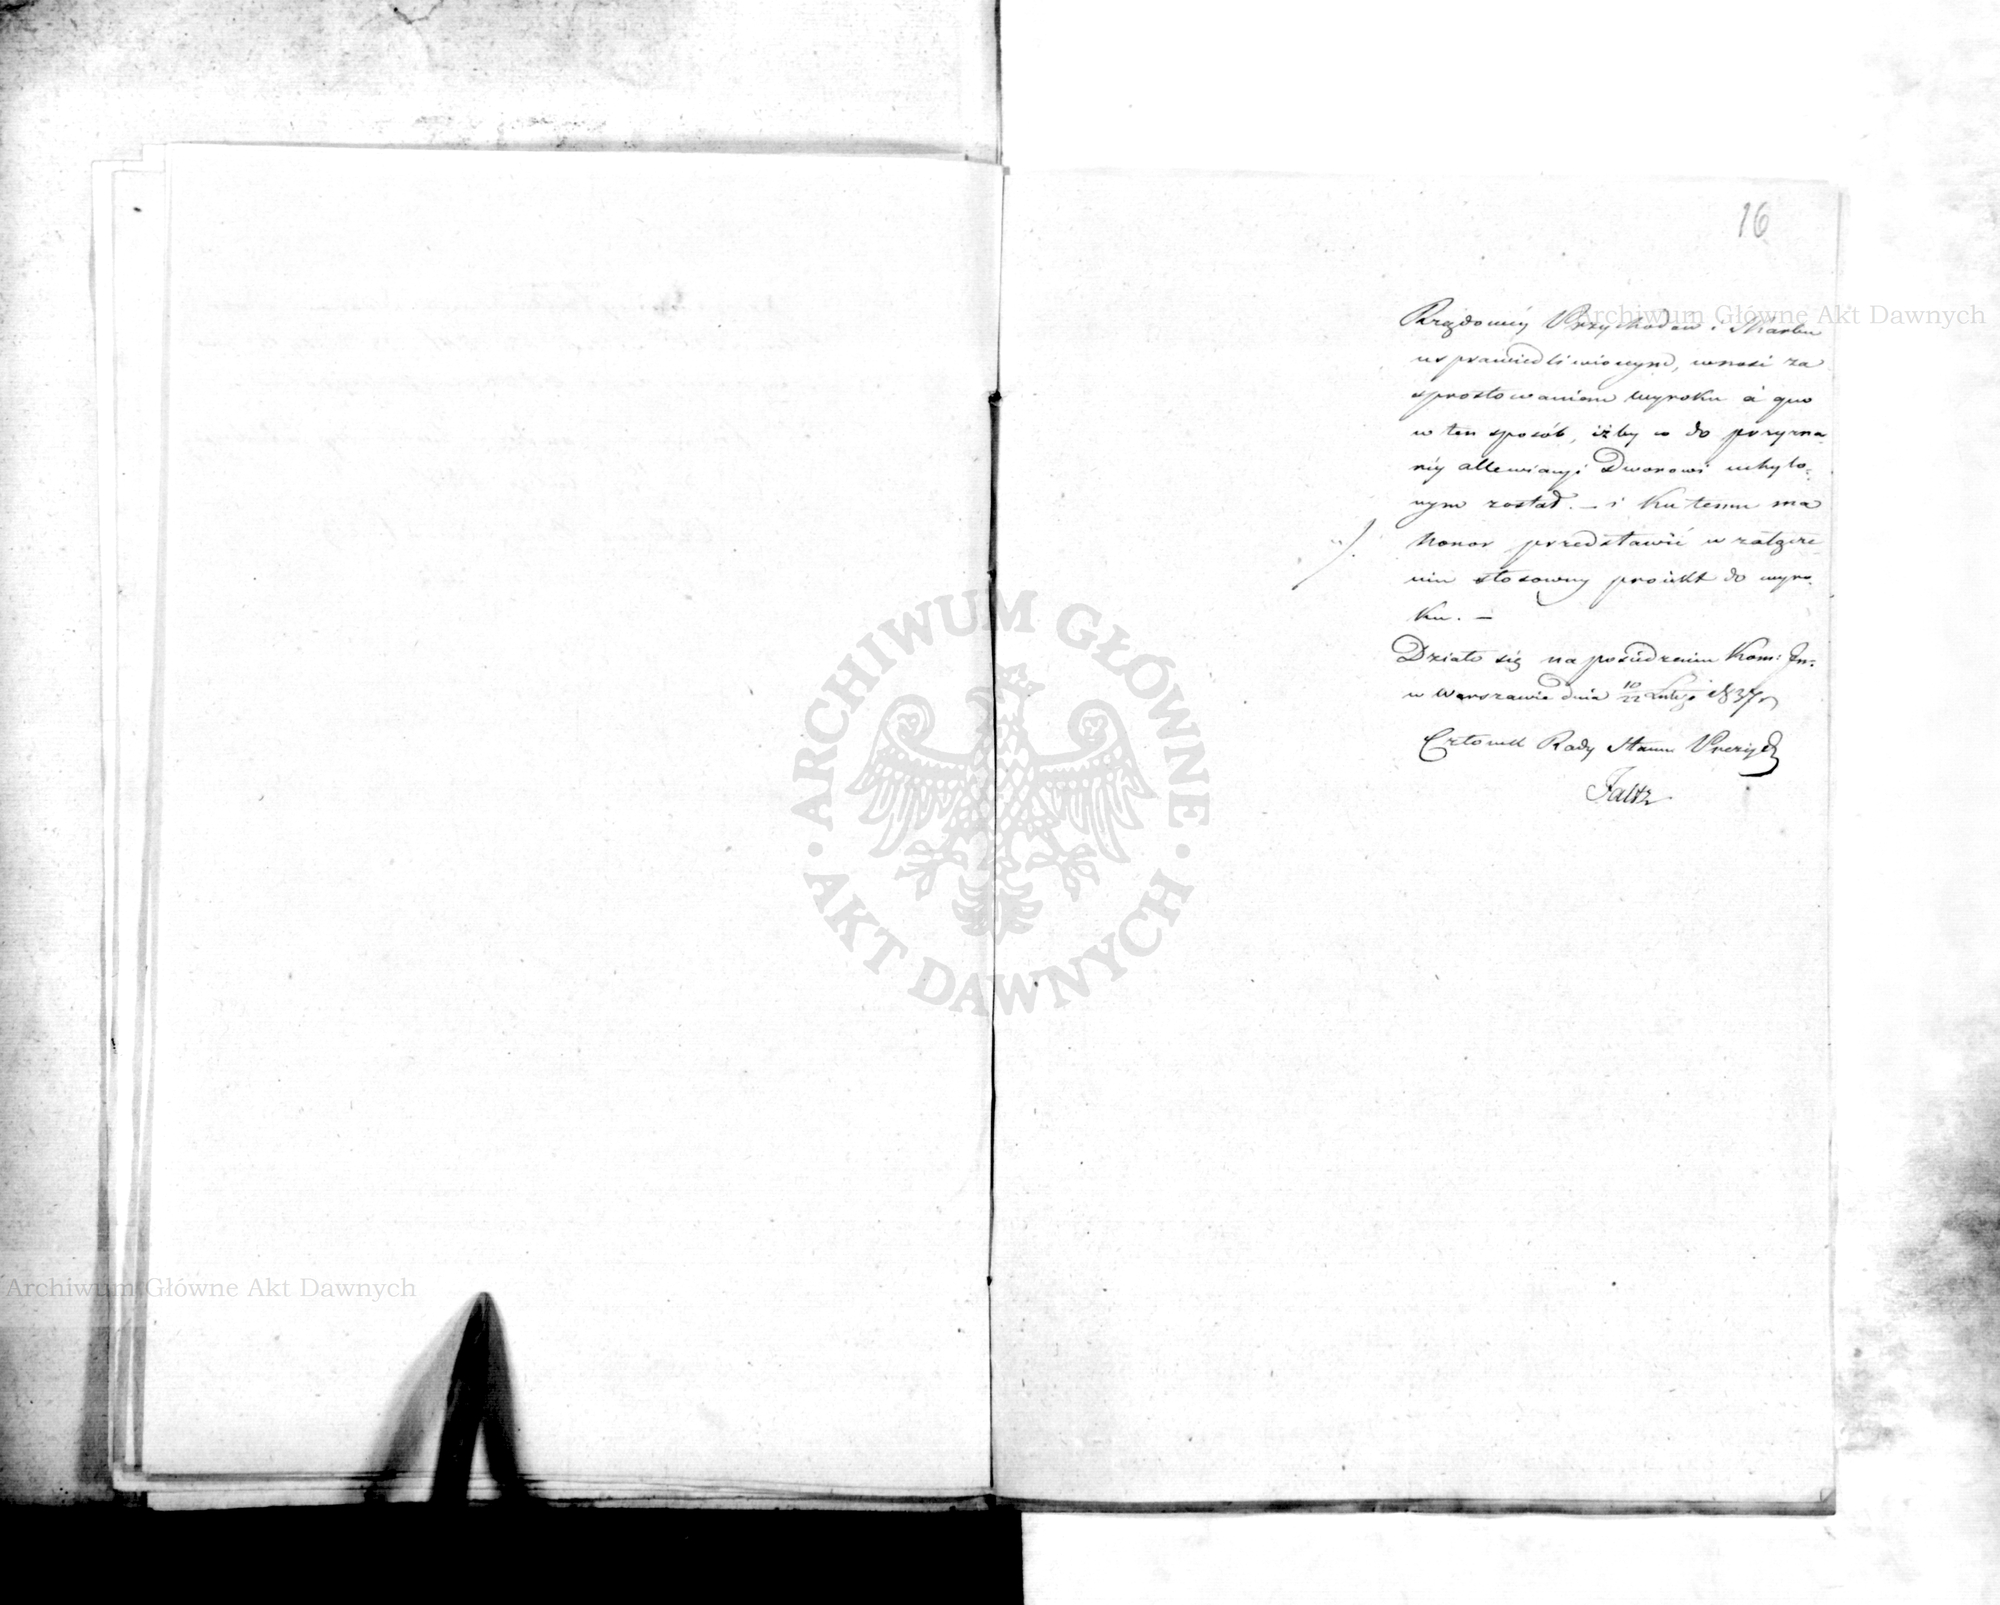 16
Rządowéy Przychodow i Skarbu
usprawiedliwionym, wnosi za
sprostowaniem wyroku à quo
w ten sposób, iżby co do przyzna-
néy allewiacyi Dworowi uchylo-
nym został. – i ku temu ma
honor przedstawić w załącze
niu stosowny proiekt do wyro-
ku. –
Działo się na posiedzeniu Kom: In:
w Warszawie dnia 10/22 Lutego 1837 r
Członek Rady Stanu Prezyd
Archiwum Główne Akt Dawnych
ARCHIWUM GŁÓWNE
AKT DAWNYCH
Archiwum Główne Akt Dawnych